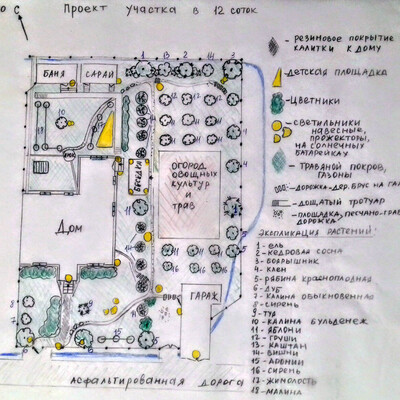 С
Проект участка в 12 соток
- резиновое покрытие
калитки к дому
- детская площадка
- цветники
- светильники
навесные,
прожекторы,
на солнечных
батарейках
- травяной покров,
газоны
- дорожка-дер. брус на га
- дощатый тротуар
- площадка, песчано-грав
дорожка
Экспликация растений:
1 - ель
2 - кедровая сосна
3 - боярышник
4 - клен
5 - рябина красноплодная
6 - дуб
7 - калина обыкновенная
8 - сирень
9 - туя
10 - калина бульденеж
11 - яблони
12 - груши
13 - каштан
14 - вишни
15 - аронии
16 - сирень
17 - жимолость
18 - малина
Баня
Сарай
Огород
овощных
культур
и
трав
Дом
Гараж
Асфальтированная дорога